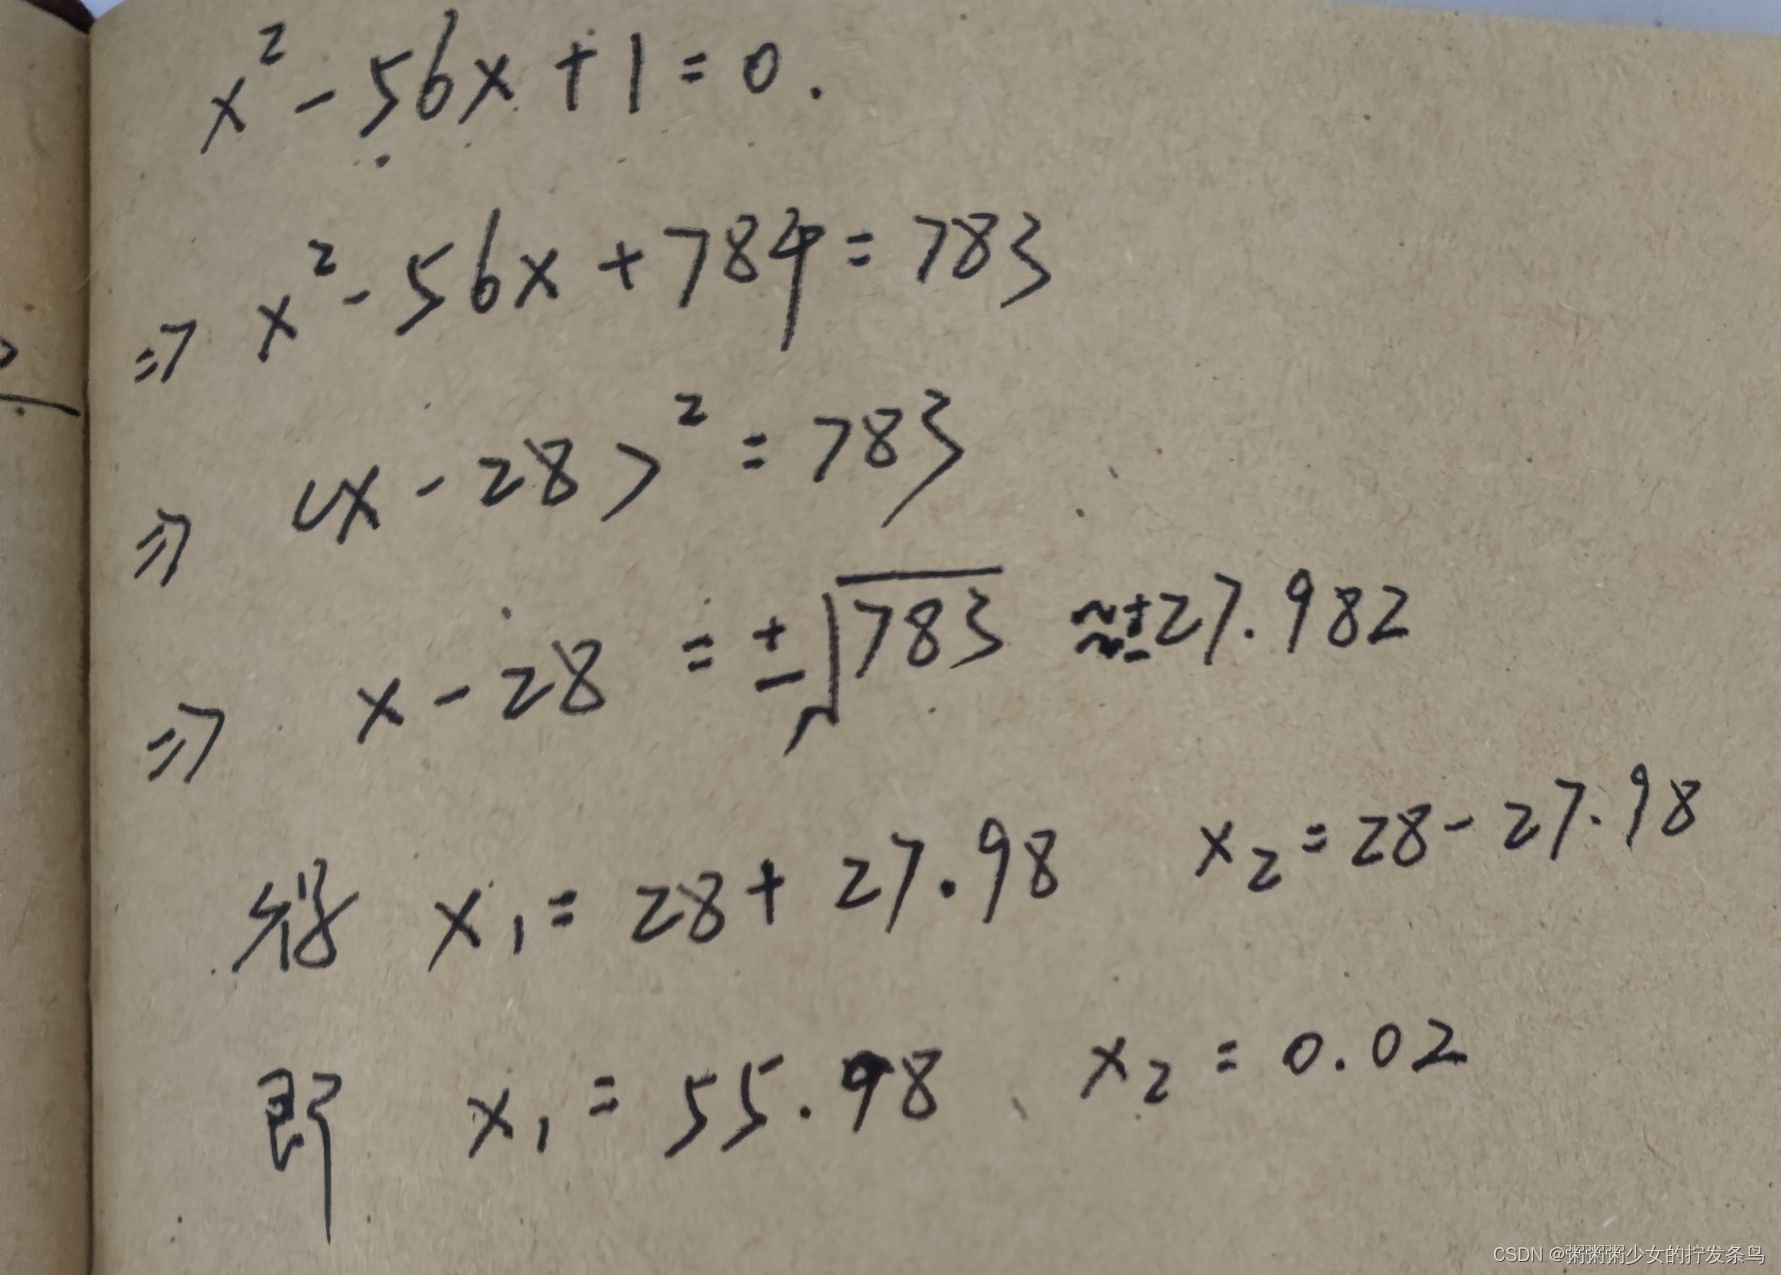 x² - 56x + 1 = 0.
⇒ x² - 56x + 784 = 783
⇒ (x - 28)² = 783
⇒ x - 28 = ±√783 ≈ ±27.982
得 x₁ = 28 + 27.98 x₂ = 28 - 27.98
即 x₁ = 55.98、x₂ = 0.02
CSDN @粥粥粥少女的拧发条鸟